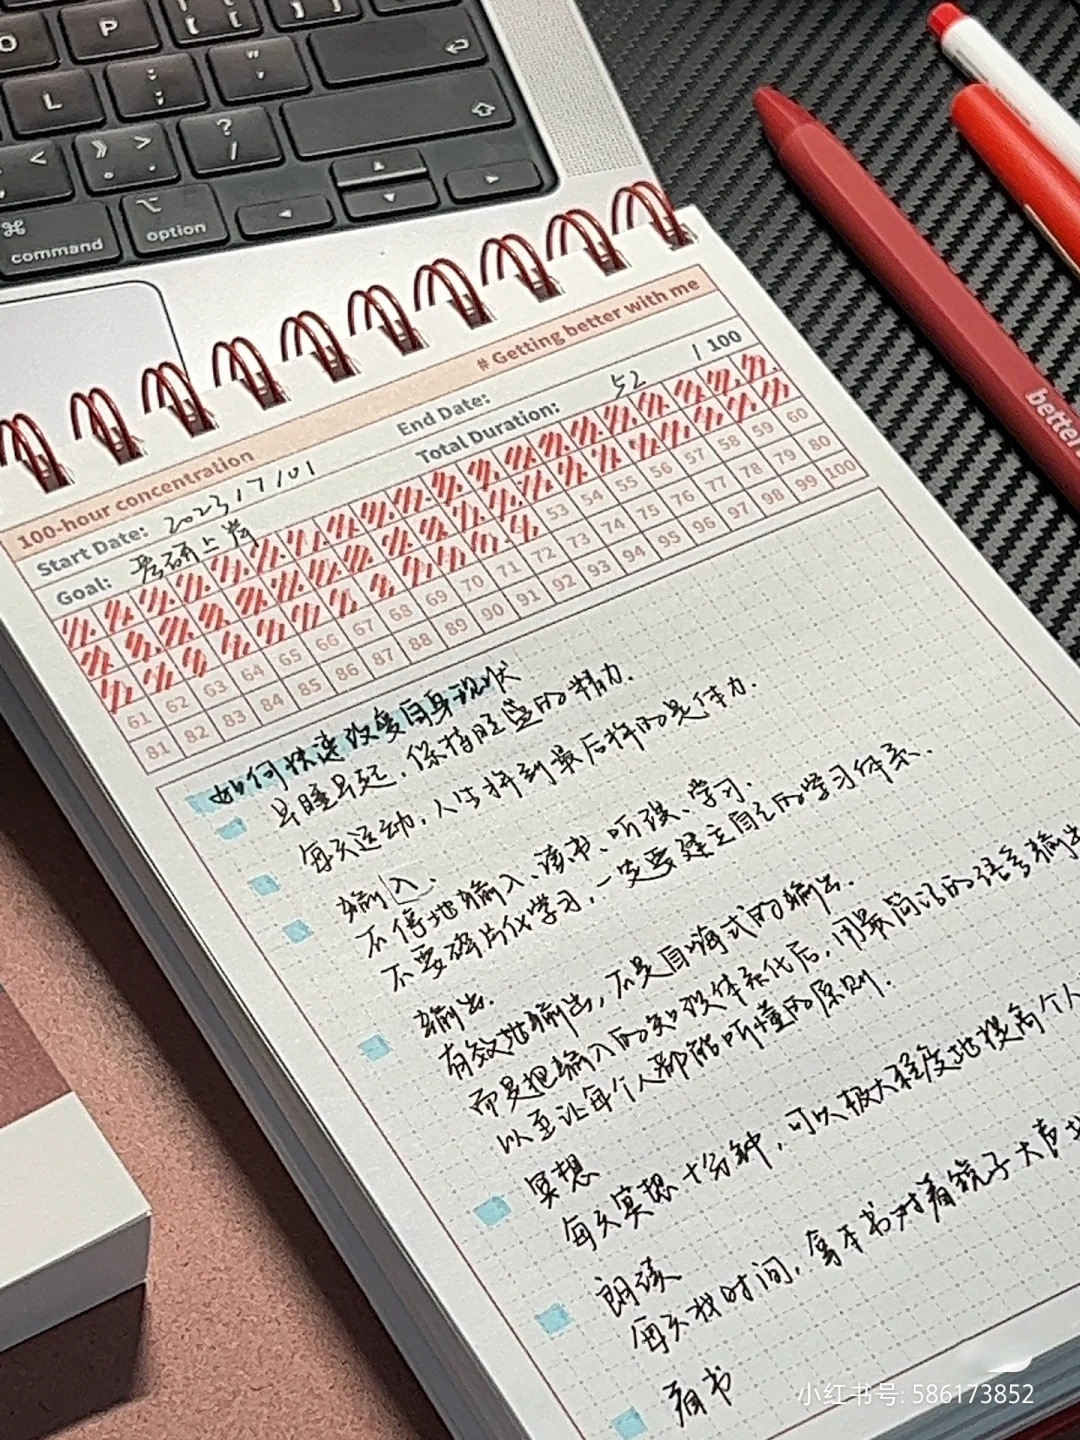 O P { [ } ]
L : ; " '
< , 》 > . ? /
⌘ command ⌥ option
# Getting better with me
100-hour concentration
Start Date: 2023/7/01 End Date:
Goal: 考研上岸 Total Duration: 52 / 100
53 54 55 56 57 58 59 60
61 62 63 64 65 66 67 68 69 70 71 72 73 74 75 76 77 78 79 80
81 82 83 84 85 86 87 88 89 90 91 92 93 94 95 96 97 98 99 100
如何快速改变自身现状
早睡早起,保持旺盛的精力.
每天运动,人生拼到最后拼的是体力.
输入.
不停地输入、读书、听课、学习.
不要碎片化学习,一定要建立自己的学习体系.
输出.
有效地输出,不是自嗨式的输出.
而是把输入的知识体系化后,用最简洁的语言输出
以至让每个人都能听懂的原则.
冥想
每天冥想十分钟,可以极大程度地提高个人
朗读
每天找时间,拿本书对着镜子大声地
看书
better
小红书号: 586173852